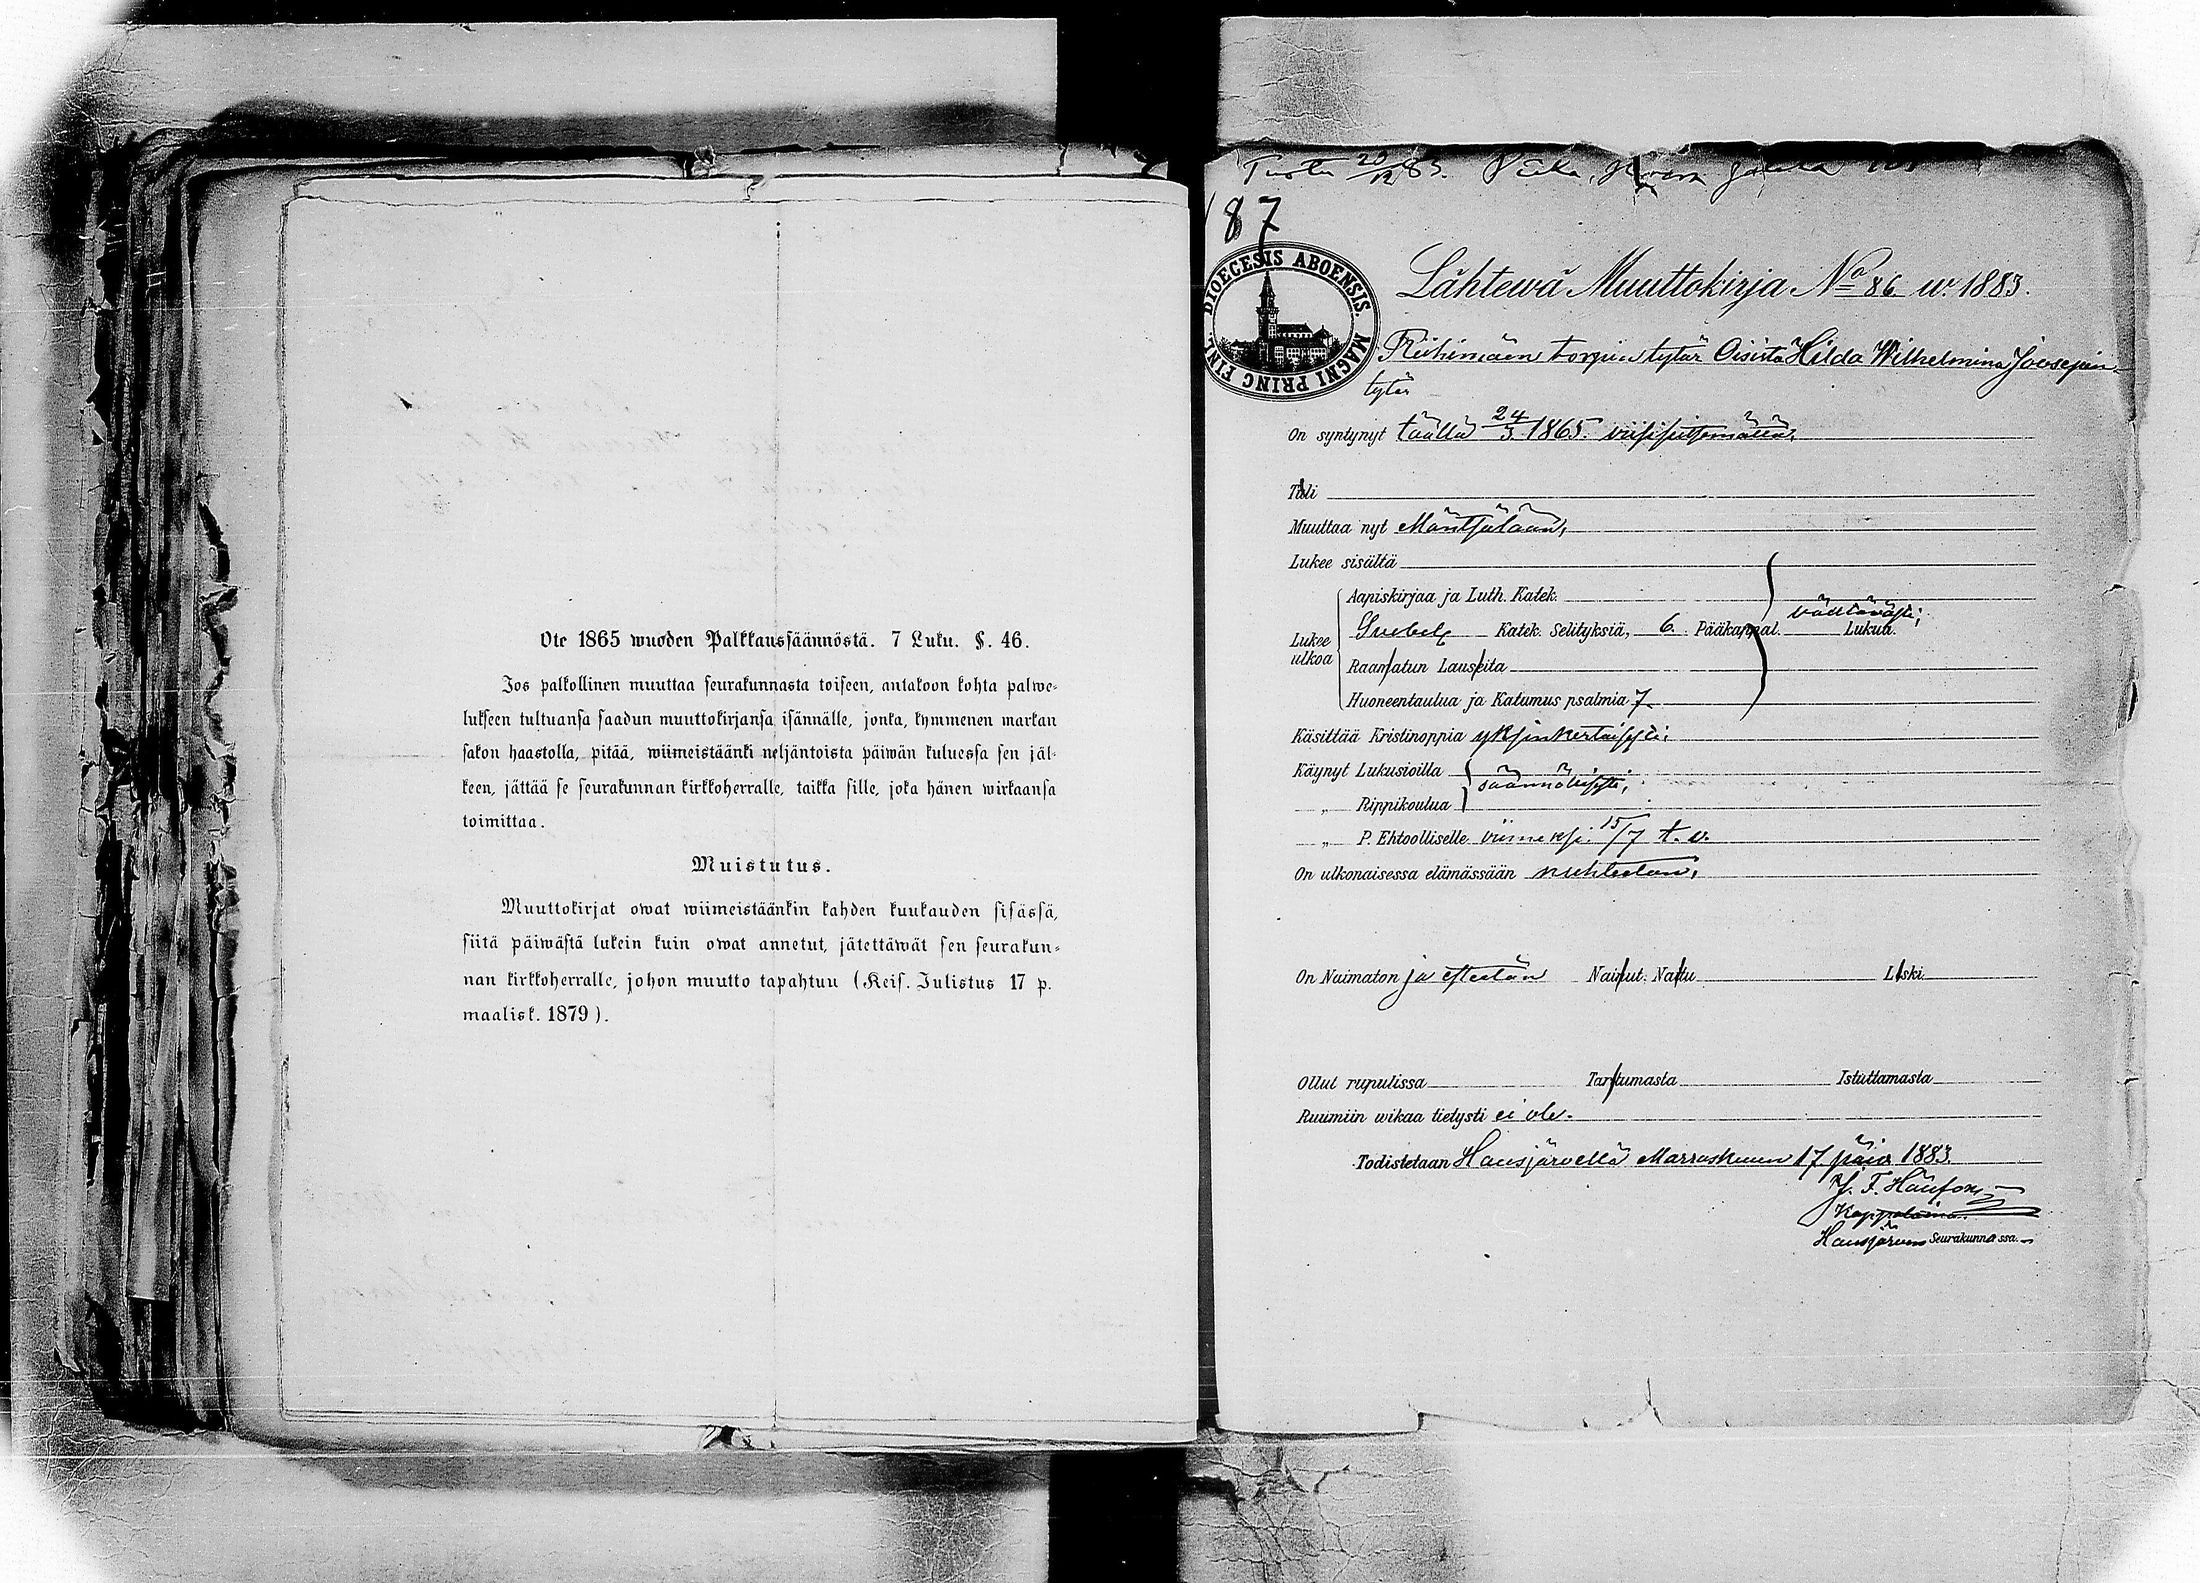 Ote 1865 wuoden Palkkaussäännöstä. 7 Luku. §. 46.
Jos palkollinen muuttaa seurakunnasta toiseen, antakoon kohta palwe-
lukseen tultuansa saadun muuttokirjansa isännälle, jonka, kymmenen markan
sakon haastolla, pitää, wiimeistäänki neljäntoista päiwän kuluessa sen jäl-
keen, jättää se seurakunnan kirkkoherralle, taikka sille, joka hänen wirkaansa
toimittaa.
Muistutus.
Muuttokirjat owat wiimeistäänkin kahden kuukauden sisässä,
siitä päiwästä lukein kuin owat annetut, jätettäwät sen seurakun-
nan kirkkoherralle, johon muutto tapahtuu (Keis. Julistus 17 p.
maalisk. 1879).
20/12 83.
187
DIOECESIS ABOENSIS. MAGNI PRINC FINL.
Lähtewä Muuttokirja No 86 w. 1883.
Riihimäen torpin tytär Oisista Hilda Wilhelmina Joosepin
tytär
On syntynyt täällä 24/3 1865.
Tuli
Muuttaa nyt Mäntsälään,
Lukee sisältä
Aapiskirjaa ja Luth. Katek.
välttävästi;
Lukee ulkoa
Katek. Selityksiä, 6. Pääkappal. Lukua.
Raamatun Lauseita
Huoneentaulua ja Katumus psalmia 7.
Käsittää Kristinoppia yksinkertaisesti;
Käynyt Lukusioilla
säännöllisesti;
„ Rippikoulua
„ P. Ehtoolliselle viimeksi 15/7 t. v.
On ulkonaisessa elämässään nuhteeton,
On Naimaton ja esteetön Nainut. Naitu Leski
Ollut rupulissa Tartumasta Istuttamasta
Ruumiin wikaa tietysti ei ole.
Todistetaan Hausjärvellä Marraskuun 17 päiv 1883.
J. F.
Kappalainen
Hausjärven Seurakunnassa.